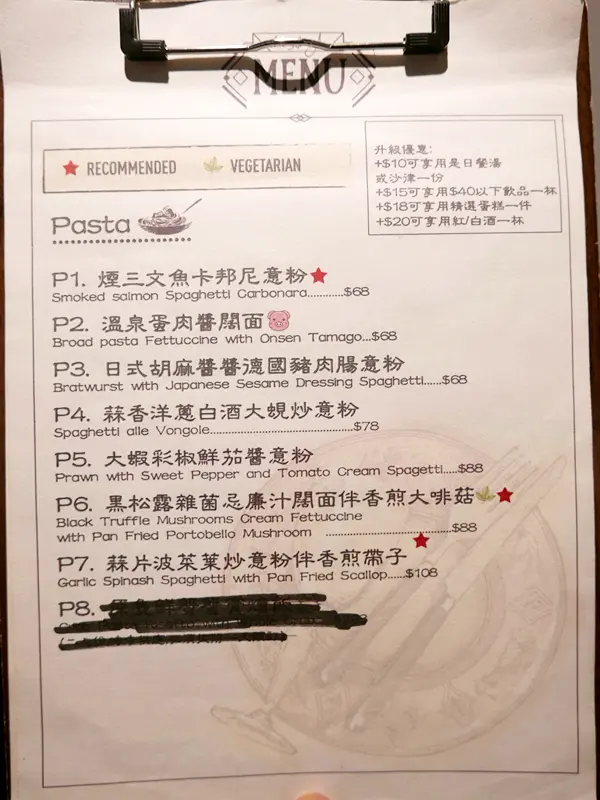 MENU
RECOMMENDED
VEGETARIAN
升級優惠:
+$10可享用是日餐湯
或沙津一份
+$15可享用$40以下飲品一杯
+$18可享用精選蛋糕一件
+$20可享用紅/白酒一杯
Pasta
P1. 煙三文魚卡邦尼意粉
Smoked salmon Spaghetti Carbonara............$68
P2. 溫泉蛋肉醬闊面
Broad pasta Fettuccine with Onsen Tamago...$68
P3. 日式胡麻醬醬德國豬肉腸意粉
Bratwurst with Japanese Sesame Dressing Spaghetti......$68
P4. 蒜香洋蔥白酒大蜆炒意粉
Spaghetti alle Vongole.......................................$78
P5. 大蝦彩椒鮮茄醬意粉
Prawn with Sweet Pepper and Tomato Cream Spagetti.....$88
P6. 黑松露雜菌忌廉汁闊面伴香煎大啡菇
Black Truffle Mushrooms Cream Fettuccine
with Pan Fried Portobello Mushroom ..................................$88
P7. 蒜片波菜葉炒意粉伴香煎帶子
Garlic Spinash Spaghetti with Pan Fried Scallop......$108
P8.